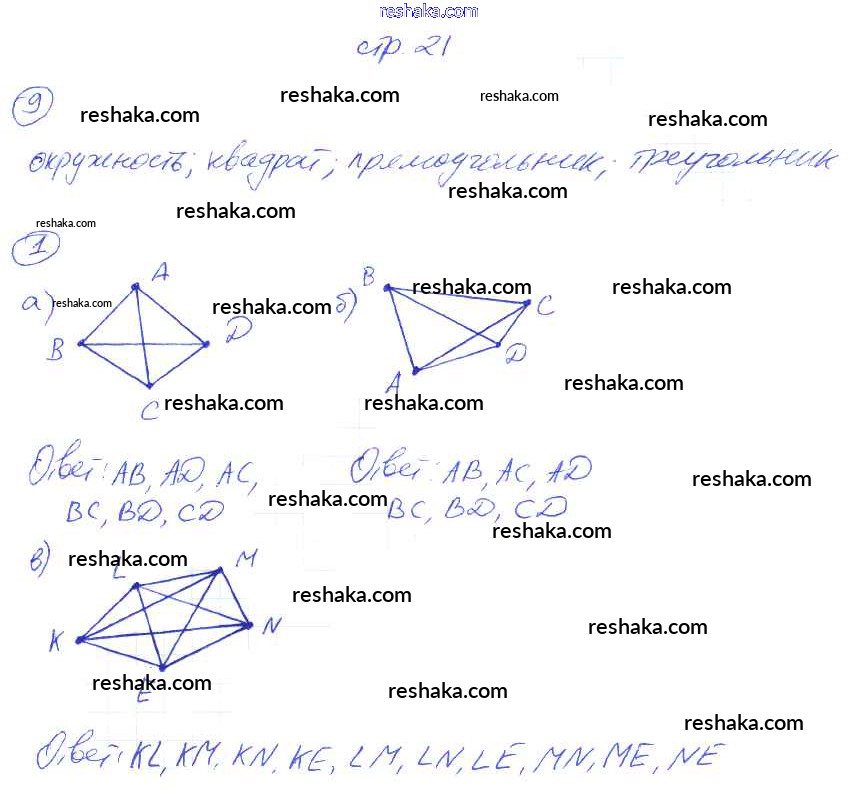 reshaka.com
стр. 21
9
reshaka.com reshaka.com reshaka.com reshaka.com
окружность; квадрат; прямоугольник; треугольник
reshaka.com reshaka.com
reshaka.com
1
а) A B C D
reshaka.com reshaka.com
б) B C D A
reshaka.com reshaka.com
reshaka.com
reshaka.com reshaka.com
Ответ: AB, AD, AC,
BC, BD, CD
Ответ: AB, AC, AD
BC, BD, CD
reshaka.com
reshaka.com
reshaka.com
в) L M K N E
reshaka.com
reshaka.com
reshaka.com
reshaka.com reshaka.com
reshaka.com
Ответ: KL, KM, KN, KE, LM, LN, LE, MN, ME, NE